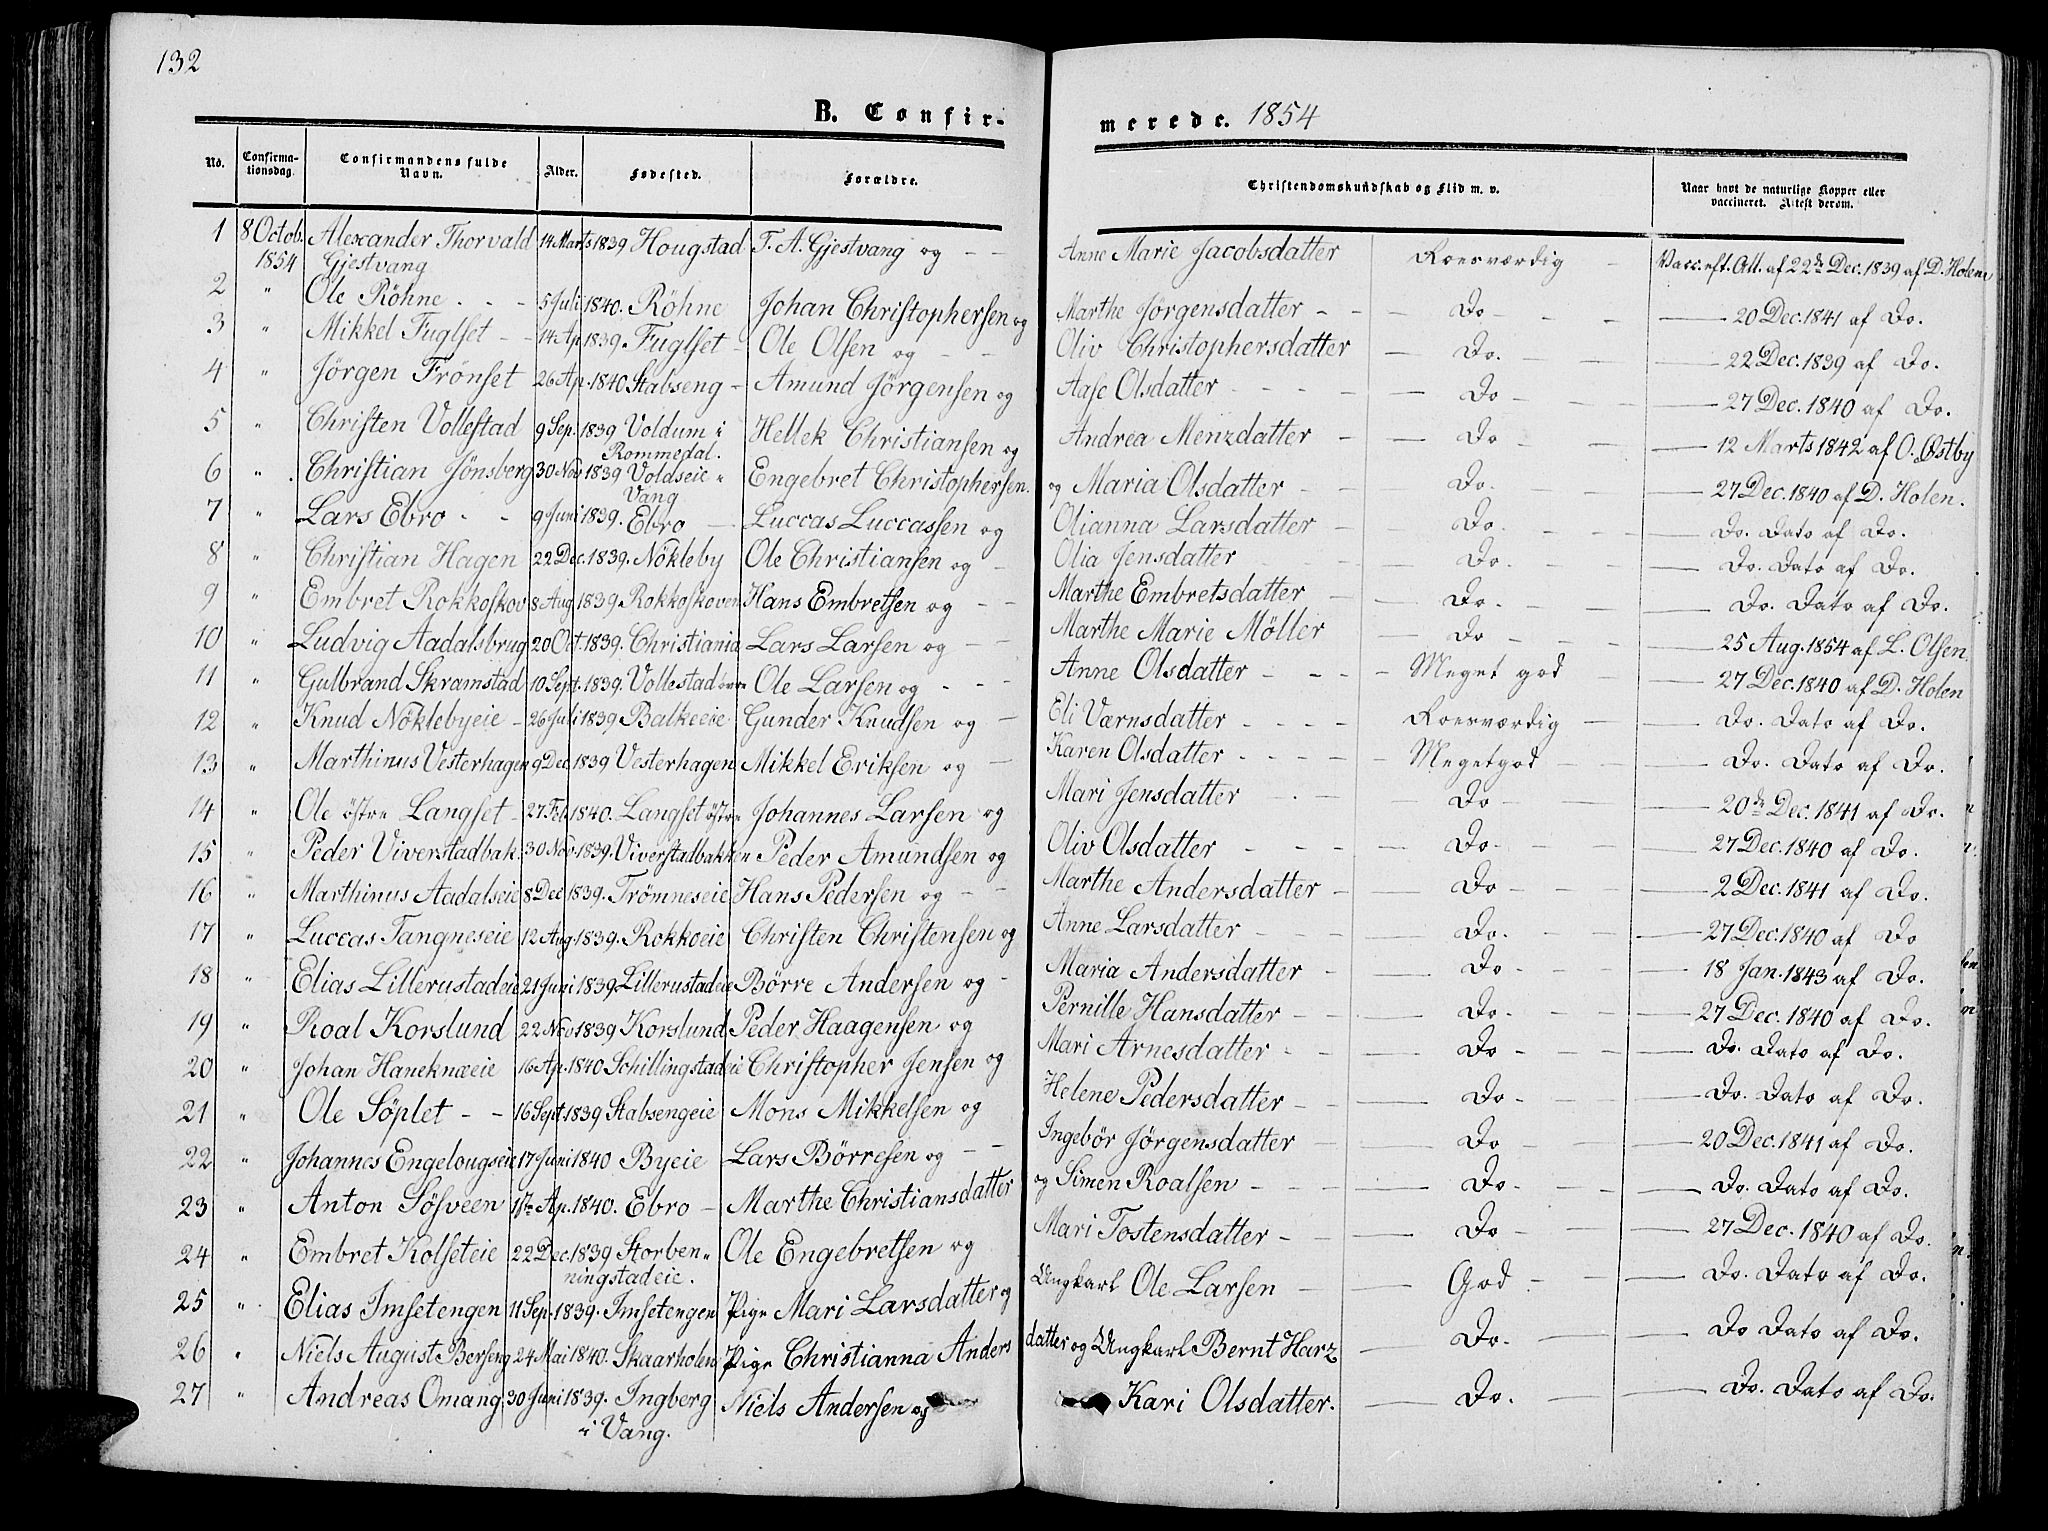 132
B. Confir-
merede. 1854
No. Confirmationsdag. Confirmandens fulde Navn. Alder. Fødested. Forældre. Christendomskundskab og Flid m. v. Naar havt de naturlige Kopper eller vaccineret. Attest derom.
1 8 Octob. Alexander Thorvald 14 Marts 1839 Hougstad F. A. Gjestvang og - - Anne Marie Jacobsdatter Roesværdig - Vacc. eft. Att. af 22de Dec. 1839 af D. Holen
1854 Gjestvang
2 " Ole Röhne - - 5 Juli 1840. Röhne Johan Christophersen og Marthe Jørgensdatter - - - Do - - - 20 Dec. 1841 af Do.
3 " Mikkel Fuglset - - 14 Ap. 1839. Fuglset - Ole Olsen og - - Oliv Christophersdatter - Do. - - 22 Dec. 1839 af Do.
4 " Jörgen Frönset 26 Ap. 1840. Stabseng - Amund Jörgensen og Aase Olsdatter - - - Do - - - 27 Dec. 1840 af Do.
5 " Christen Vollestad 9 Sep. 1839 Voldum i Hellek Christiansen og Andrea Menzdatter - - Do - - 12 Marts 1842 af O. Østby
Rommedal.
6 " Christian Jönsberg 30 Nov 1839 Voldseie " Engebret Christophersen. og Maria Olsdatter - - Do. - - 27 Dec. 1840 af D. Holen.
Vang
7 " Lars Ebro - - 9 Juni 1839. Ebro - Luccas Luccassen og Olianna Larsdatter - - Do. - - Do. Dato af Do.
8 " Christian Hagen 22 Dec. 1839. Nökleby Ole Christiansen og - Olia Jensdatter - - - Do. - - Do. Dato af Do.
9 " Embret Rokkoskov 8 Aug 1839. Rokkoskoven Hans Embretsen og - - Marthe Embretsdatter - - Do. - - Do. Dato af Do.
10 " Ludvig Aadalsbrug 20 Oct. 1839. Christiania Lars Larsen og - Marthe Marie Möller - Do - - - 25 Aug. 1854 af L. Olsen
11 " Gulbrand Skramstad 10 Sept. 1839. Vollestad øvre Ole Larsen og - - - Anne Olsdatter - - - - Meget god - 27 Dec. 1840 af D. Holen
12 " Knud Nöklebyeie - 26 Juli 1839 Balkeeie Gunder Knudsen og - Eli Værnsdatter - - - - Roesværdig - - Do. Dato af Do.
13 " Marthinus Vesterhagen 9 Dec. 1839 Vesterhagen Mikkel Eriksen og - Karen Olsdatter - - - - - Meget god - - Do. Dato af Do.
14 " Ole östre Langset - 27 Feb. 1840. Langset östre Johannes Larsen og Mari Jensdatter - - - Do - - 20de Dec. 1841 af Do.
15 " Peder Viverstadbak. 30 Nov. 1839. Viverstalbakken Peder Amundsen og Oliv Olsdatter - - - - Do - - - 27 Dec. 1840 af Do.
16 " Marthinus Aadalseie 8 Dec 1839. Trömneseie Hans Pedersen og - - Marthe Andersdatter - - Do - - - 2 Dec. 1841 af Do.
17 " Luccas Tangneseie 12 Aug 1839. Rokkoeie Christen Christensen og Anne Larsdatter - - - Do. - - 27 Dec. 1840 af Do
18 " Elias Lillerustadeie 21 Juni 1839. Lillerustadeie Börre Andersen og - Maria Andersdatter - - Do - - 18 Jan. 1843 af Do.
19 " Roal Korslund 22 Nov 1839 Korslund Peder Haagensen og Pernille Hansdatter - - - Do. - - - 27 Dec. 1840 af Do.
20 " Johan Haneknæeie 16 Ap. 1840 Schillingstadeie Christopher Jensen og Mari Arnesdatter - - - Do - - - Do. Dato af Do.
21 " Ole Söplet - - 16 Sept. 1839 Stabsengeie Mons Mikkelsen og Helene Pedersdatter - - - Do - - - Do. Dato af Do.
22 " Johannes Engelougseie 17 Juni 1840 Byeie Lars Börresen og - Ingebör Jörgensdatter - - Do - - - 20 Dec. 1841 af Do.
23 " Anton Sösveen 17de Ap. 1840. Ebro - Marthe Christiansdatter og Simen Roalsen - - - - Do. - - - Do. Dato af Do.
24 " Embret Kolseteie 22 Dec. 1839 Storben " Ole Engebretsen og Mari Tostensdatter - - - Do - - - 27 Dec. 1840 af Do.
ningstadeie.
25 " Elias Imsetengen 11 Sep. 1839. Imsetengen Pige Mari Larsdatter og Ungkarl Ole Larsen - - God - - - Do. Dato af Do.
26 " Niels August Berseng 24 Mai 1840. Skaarholen Pige Christianna Anders datter og Ungkarl Bernt Harz - Do. - - - Do Dato af Do.
27 " Andreas Omang 30 Juni 1839. Ingberg Niels Andersen og Kari Olsdatter. - Do. - - - Do. Dato af Do.
i Vang.